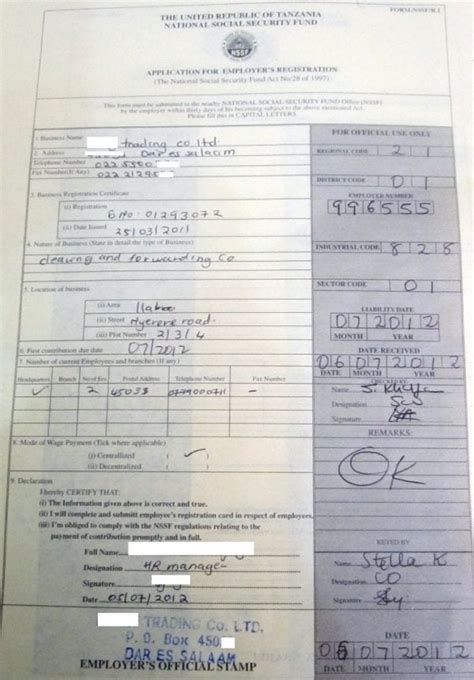 FORM:NSSF/R.1
THE UNITED REPUBLIC OF TANZANIA
NATIONAL SOCIAL SECURITY FUND
NSSF
APPLICATION FOR EMPLOYER'S REGISTRATION
(The National Social Security Fund Act No.28 of 1997)
This form must be submitted to the nearby NATIONAL SOCIAL SECURITY FUND Office (NSSF)
by the employer within thirty days of his becoming subject to the above mentioned Act.
Please fill this in CAPITAL LETTERS
1. Business Name trading co ltd
2. Address Dar es salaam
Telephone Number 022 5380
Fax Number(If Any) 022 2129
3. Business Registration Certificate
(i) Registration No: 01293072
(ii) Date Issued 25/03/2011
4. Nature of Business (State in detail the type of Business)
clearing and forwarding Co
5. Location of business
(i) Area
(ii) Street Nyerere road
(iii) Plot Number 2/3/4
6. First contribution due date 07/2012
7. Number of current Employees and branches (If any)
Headquarters Branch No of Emp. Postal Address Telephone Number Fax Number
✓ 2 45038 0779000711 –
8. Mode of Wage Payment (Tick where applicable)
(i) Centralized ( ✓ )
(ii) Decentralized ( )
9. Declaration
I hereby CERTIFY THAT:
(i) The Information given above is correct and true.
(ii) I will complete and submit employee's registration card in respect of employees.
(iii) I'm obliged to comply with the NSSF regulations relating to the
payment of contribution promptly and in full.
Full Name
Designation HR manager
Signature
Date 05/07/2012
TRADING CO. LTD.
P. O. Box 450
DAR ES SALAAM
EMPLOYER'S OFFICIAL STAMP
FOR OFFICIAL USE ONLY
REGIONAL CODE 2 1
DISTRICT CODE 0 1
EMPLOYER NUMBER
996555
INDUSTRIAL CODE 8 2 8
SECTOR CODE 0 1
LIABILITY DATE
07 2012
MONTH YEAR
DATE RECEIVED
06 07 2012
DATE MONTH YEAR
CHECKED BY
Name
Designation
Signature
REMARKS:
OK
KEYED BY
Name Stella K
Designation CO
Signature
DATE
06 07 2012
DATE MONTH YEAR